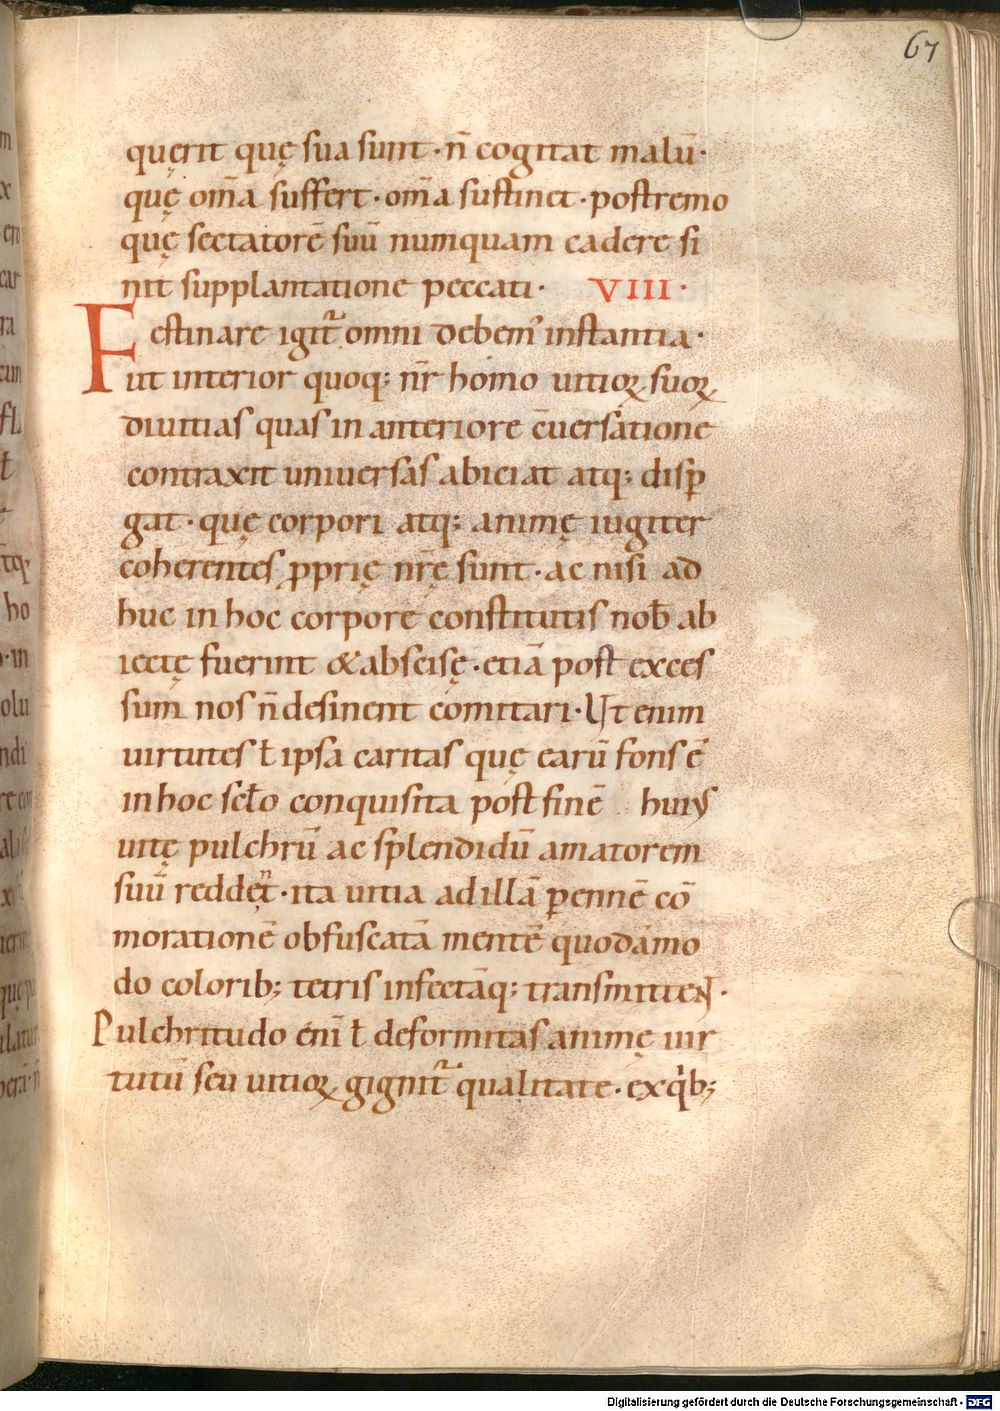 67
quęrit quę sua sunt · n̄ cogitat malū ·
quę om̄a suffert · om̄a sustinet · postremo
quę sectatorē suū numquam cadere si
nit supplantatione peccati · VIII ·
Festinare igit᷑ omni debem᾿ instantia ·
ut interior quoq; nr̄ homo uitioꝝ suoꝝ
diuitias quas in anteriore c̄uersatione
contraxit uniuersas abiciat atq; disꝑ
gat · quę corpori atq; animę iugiter
coherentes ꝓprię nr̄ę sunt · ac nisi ad
huc in hoc corpore constitutis nob̄ ab
iectę fuerint & abscisę · etiā post exces
sum nos n̄ desinent comitari · Ut enim
uirtutes ł ipsa caritas quę earū fons ē
in hoc scło conquisita post finē huiꝰ
uitę pulchrū ac splendidū amatorem
suū redder̄t · ita uitia ad illā ꝑennē cō
morationē obfuscatā mentē quodāmo
do colorib; tetris infectāq; transmitteɴt ·
Pulchritudo eni̅ ł deformitas animę uir
tutū seu uitioꝝ gignit᷑ qualitate · ex qͥb;
Digitalisierung gefördert durch die Deutsche Forschungsgemeinschaft - DFG